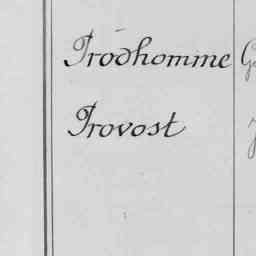 Prodhomme
Provost